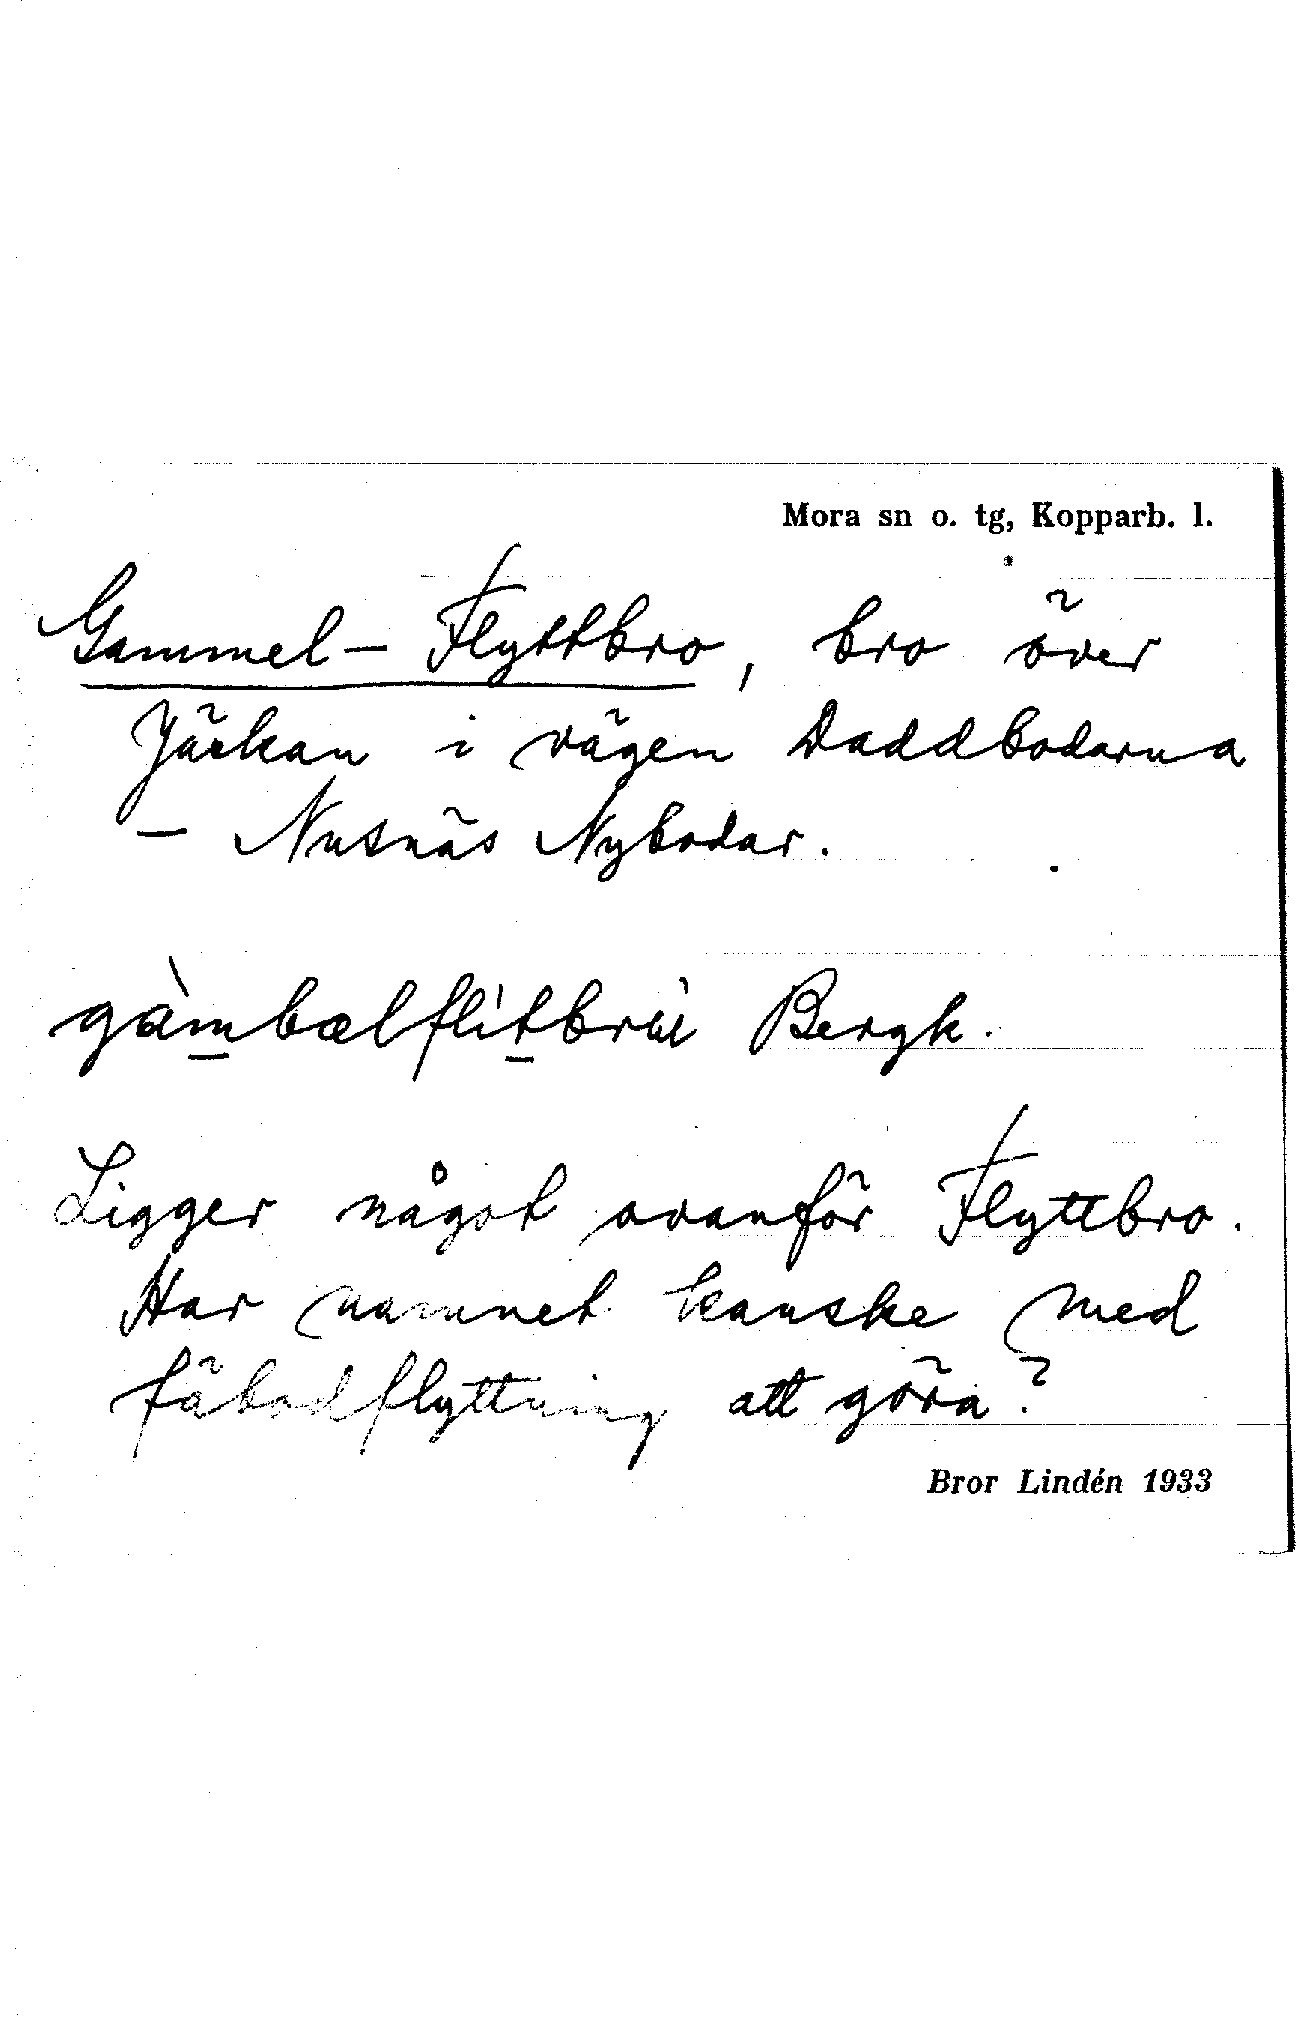 Mora sn o. tg, Kopparb. l.
Gammel-Flyttbro, bro över
Jäckan i vägen Daddbodarna
– Nusnäs Nybodar.
gàmbælflítbrùi Bergk.
Ligger något ovanför Flyttbro.
Har namnet kanske med
fäbodflyttning att göra?
Bror Lindén 1933